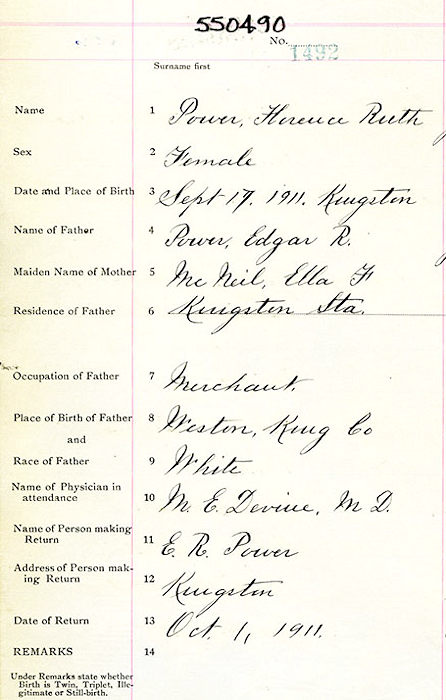 550490
No. 1492
Surname first
Name 1 Power, Florence Ruth
Sex 2 Female
Date and Place of Birth 3 Sept 17, 1911. Kingston
Name of Father 4 Power, Edgar R.
Maiden Name of Mother 5 McNeil, Ella F
Residence of Father 6 Kingston Sta.
Occupation of Father 7 Merchant.
Place of Birth of Father 8 Weston, King Co
and
Race of Father 9 White
Name of Physician in
attendance 10 M. E. Devine, M D.
Name of Person making
Return 11 E. R. Power
Address of Person mak-
ing Return 12 Kingston
Date of Return 13 Oct. 1, 1911.
REMARKS 14
Under Remarks state whether
Birth is Twin, Triplet, Ille-
gitimate or Still-birth.